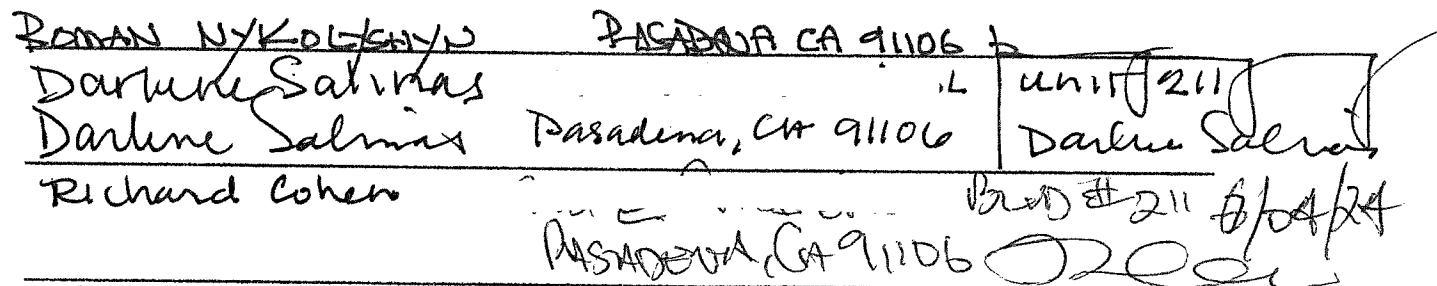 ROMAN NYKOLYSHYN PASADENA CA 91106
Darlene Salinas unit 211
Darlene Salinas Pasadena, CA 91106 Darlene Salinas
Richard Cohen Blvd #211 6/04/24
PASADENA, CA 91106